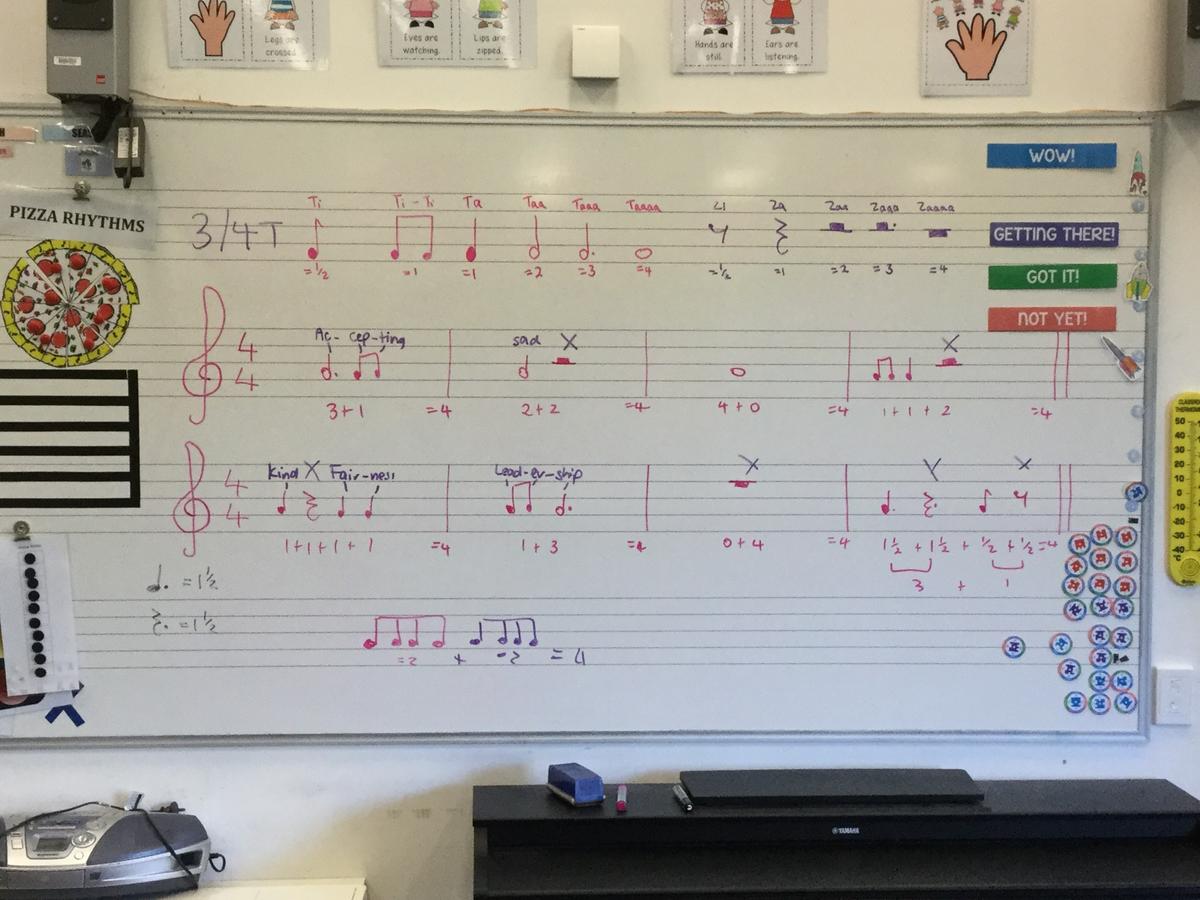 Legs are crossed.
Eyes are watching.
Lips are zipped.
Hands are still.
Ears are listening.
WOW!
GETTING THERE!
GOT IT!
NOT YET!
PIZZA RHYTHMS
3/4T
Ti Ti - Ti Ta Taa Taaa Taaaa Zi Za Zaa Zaaa Zaaaa
=½ =1 =1 =2 =3 =4 =½ =1 =2 =3 =4
Ac- cep-ting sad X X
4 4
3+1 =4 2+2 =4 4+0 =4 1+1+2 =4
Kind X Fair-ness Lead-er-ship X X X
4 4
1+1+1+1 =4 1+3 =4 0+4 =4 1½ + 1½ + ½ + ½ =4
3 + 1
=1½
=1½
=2 + =2 = 4
50
40
30
20
10
0
-10
-20
-30
-40
°C
YAMAHA